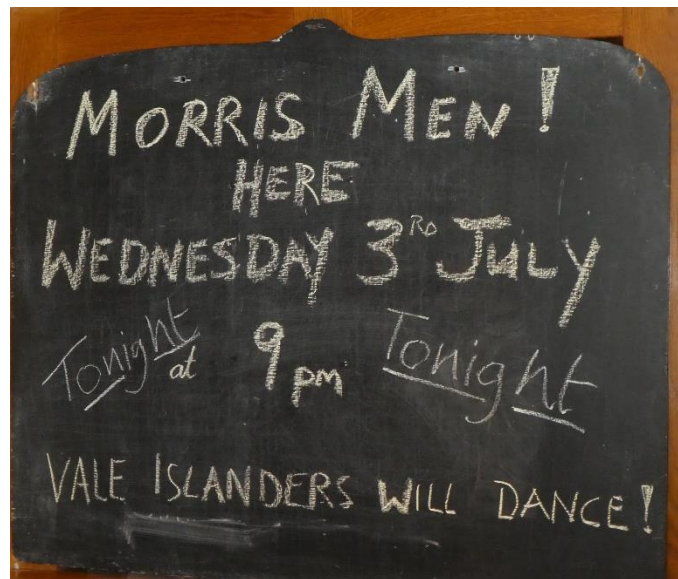 MORRIS MEN!
HERE
WEDNESDAY 3RD JULY
Tonight at 9pm Tonight
VALE ISLANDERS WILL DANCE!